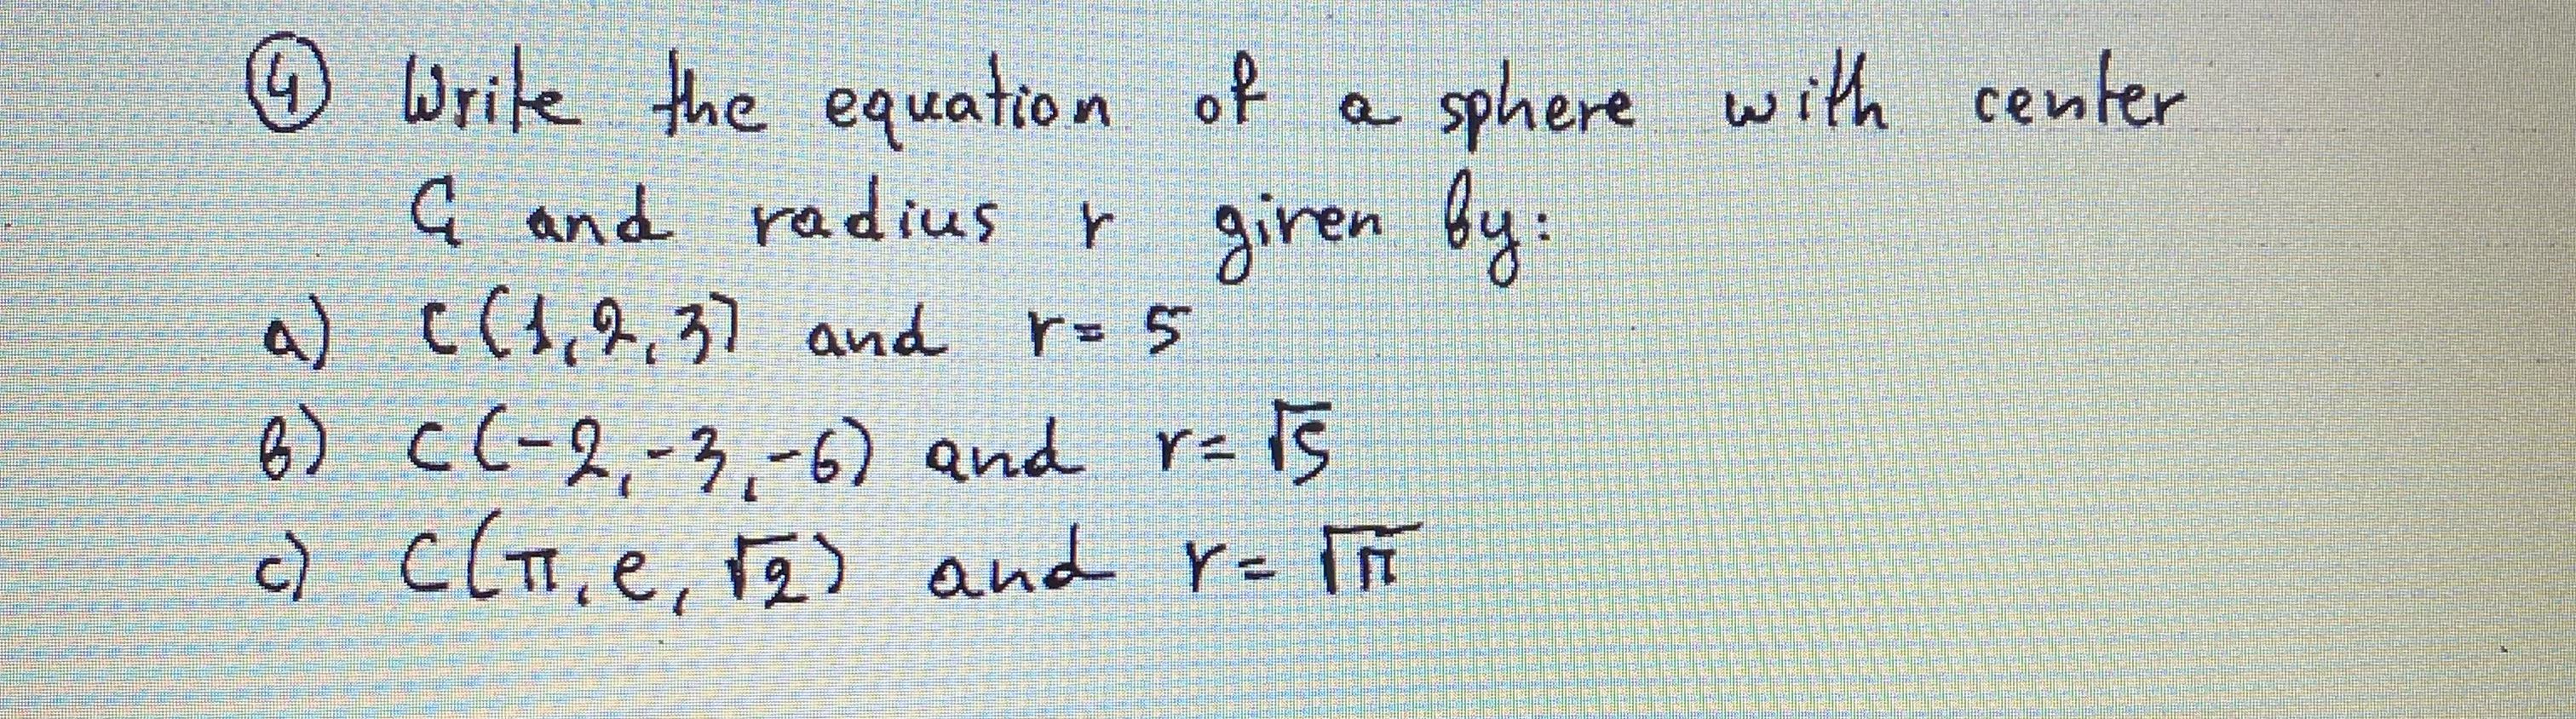 ④ Write the equation of a sphere with center
C and radius r given by:
a) C(1,2,3) and r= 5
b) C(-2,-3,-6) and r= √5
c) C(π,e,√2) and r= √π